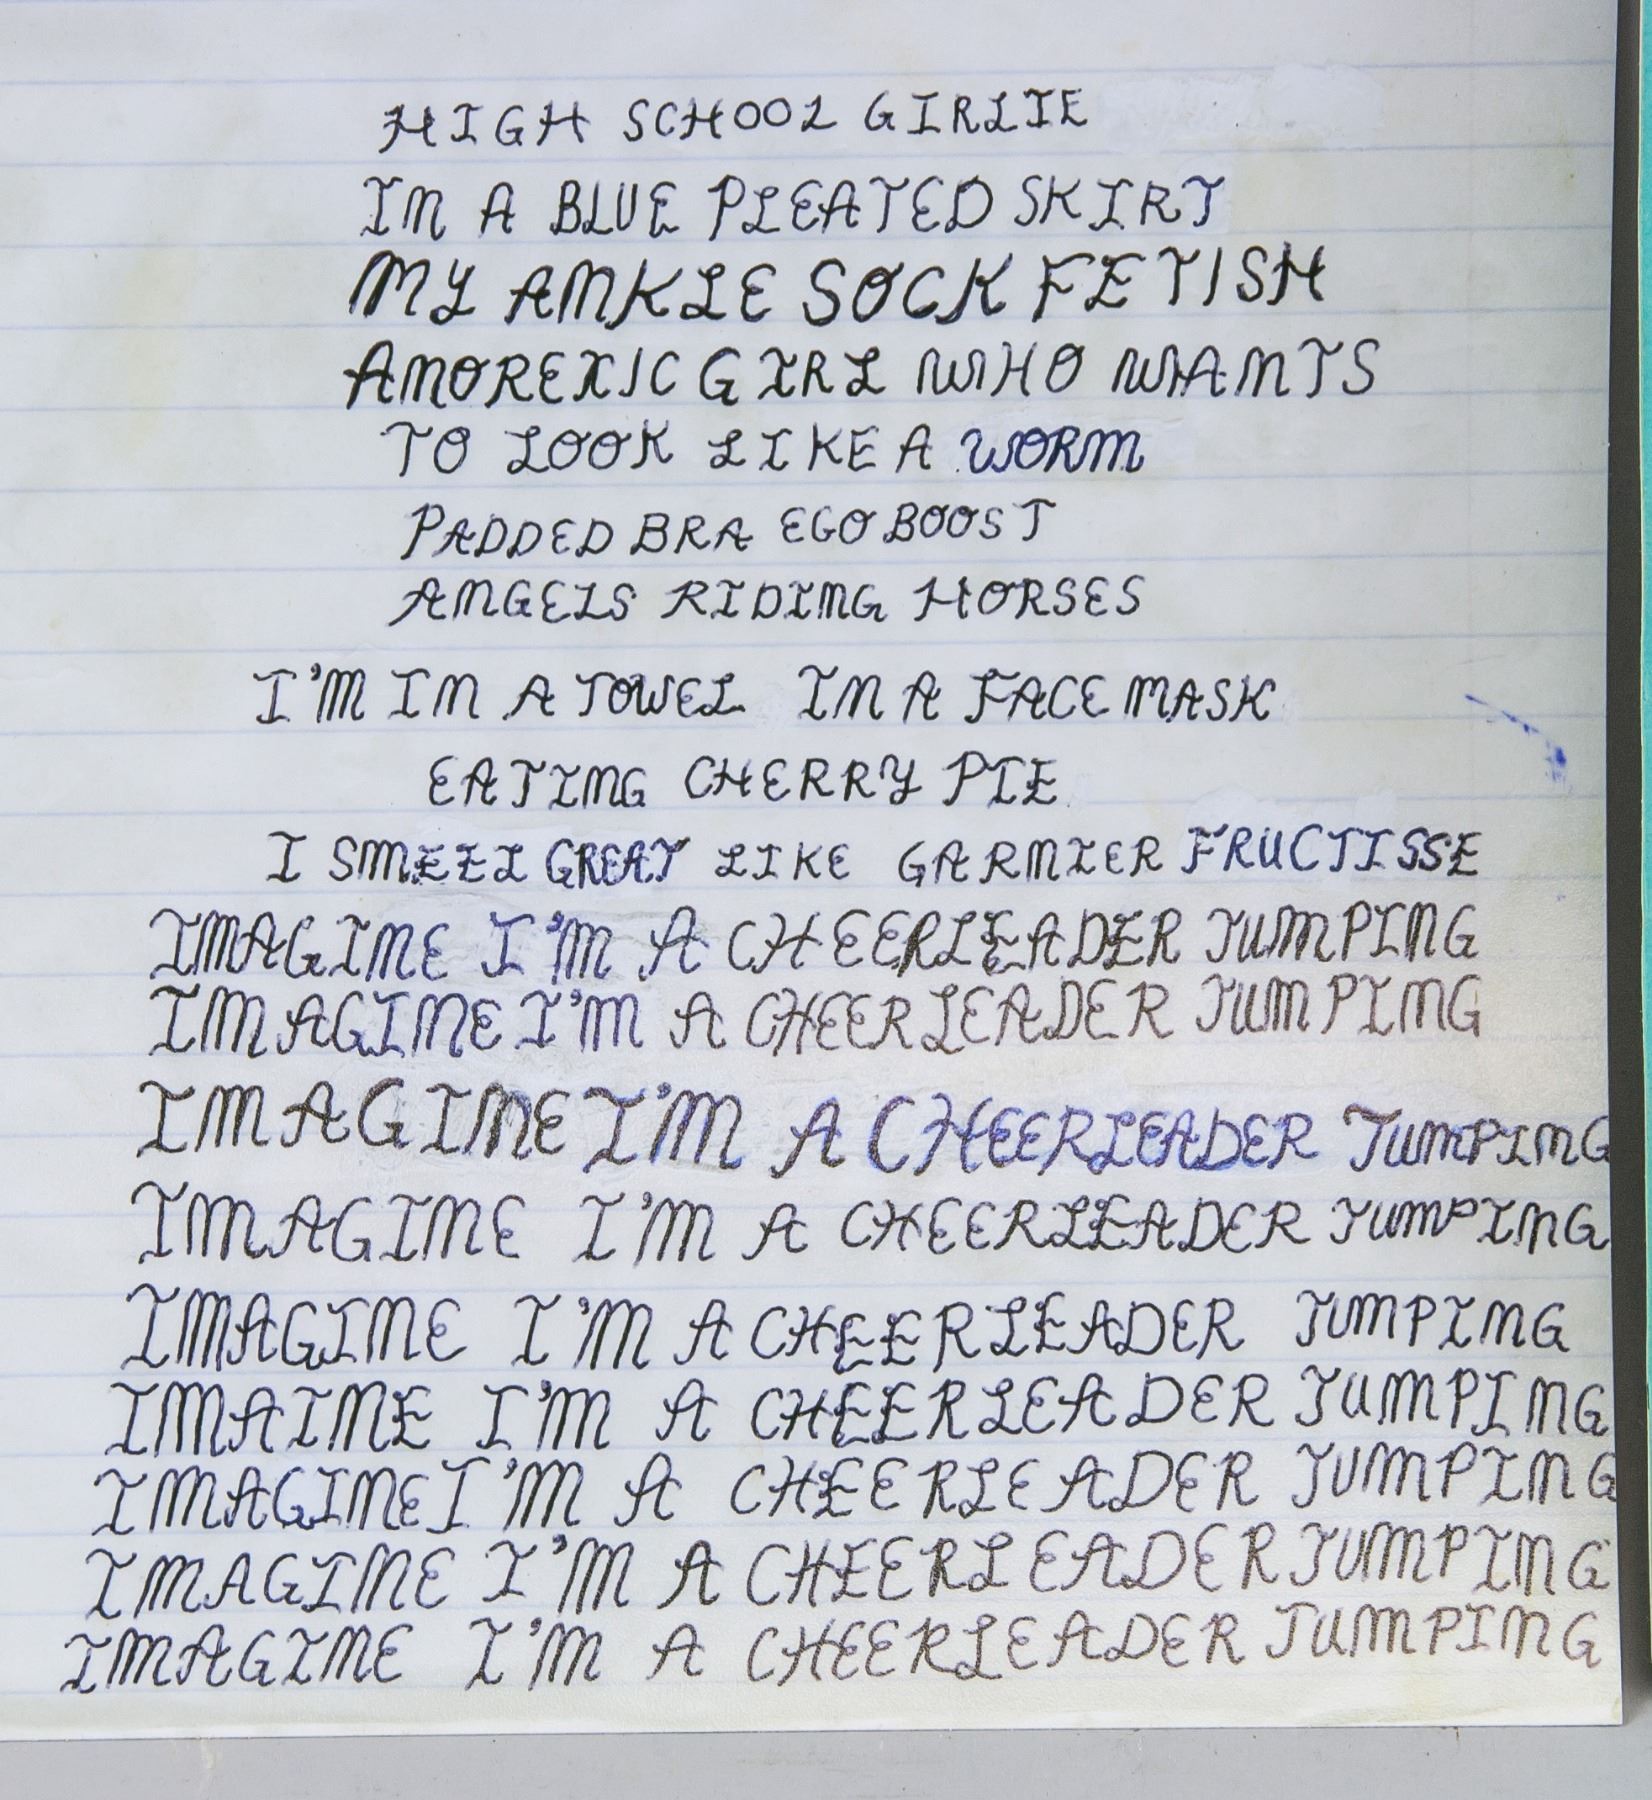 HIGH SCHOOL GIRLIE
IN A BLUE PLEATED SKIRT
MY ANKLE SOCK FETISH
ANOREXIC GIRL WHO WANTS
TO LOOK LIKE A WORM
PADDED BRA EGO BOOST
ANGELS RIDING HORSES
I'M IN A TOWEL IN A FACE MASK
EATING CHERRY PIE
I SMEEL GREAT LIKE GARNIER FRUCTISSE
IMAGINE I'M A CHEERLEADER JUMPING
IMAGINE I'M A CHEERLEADER JUMPING
IMAGINE I'M A CHEERLEADER JUMPING
IMAGINE I'M A CHEERLEADER JUMPING
IMAGINE I'M A CHEERLEADER JUMPING
IMAINE I'M A CHEERLEADER JUMPING
IMAGINE I'M A CHEERLEADER JUMPING
IMAGINE I'M A CHEERLEADER JUMPING
IMAGINE I'M A CHEERLEADER JUMPING